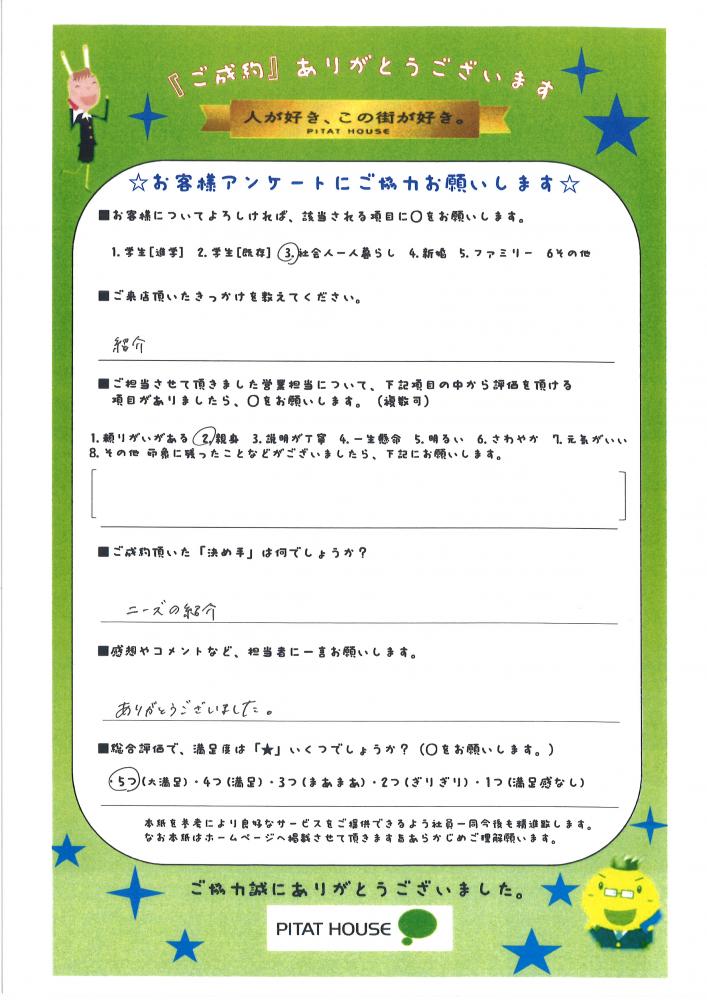 『ご成約』ありがとうございます
人が好き、この街が好き。
PITAT HOUSE
☆お客様アンケートにご協力お願いします☆
■お客様についてよろしければ、該当される項目に〇をお願いします。
1.学生[進学] 2.学生[既存] 3.社会人一人暮らし 4.新婚 5.ファミリー 6その他
■ご来店頂いたきっかけを教えてください。
紹介
■ご担当させて頂きました営業担当について、下記項目の中から評価を頂ける
項目がありましたら、〇をお願いします。（複数可）
1.頼りがいがある 2.親身 3.説明が丁寧 4.一生懸命 5.明るい 6.さわやか 7.元気がいい
8.その他 印象に残ったことなどがございましたら、下記にお願いします。
■ご成約頂いた「決め手」は何でしょうか？
ニーズの紹介
■感想やコメントなど、担当者に一言お願いします。
ありがとうございました。
■総合評価で、満足度は「★」いくつでしょうか？（〇をお願いします。）
・5つ(大満足)・4つ(満足)・3つ(まあまあ)・2つ(ぎりぎり)・1つ(満足感なし)
本紙を参考により良好なサービスをご提供できるよう社員一同今後も精進致します。
なお本紙はホームページへ掲載させて頂きます旨あらかじめご理解願います。
ご協力誠にありがとうございました。
PITAT HOUSE